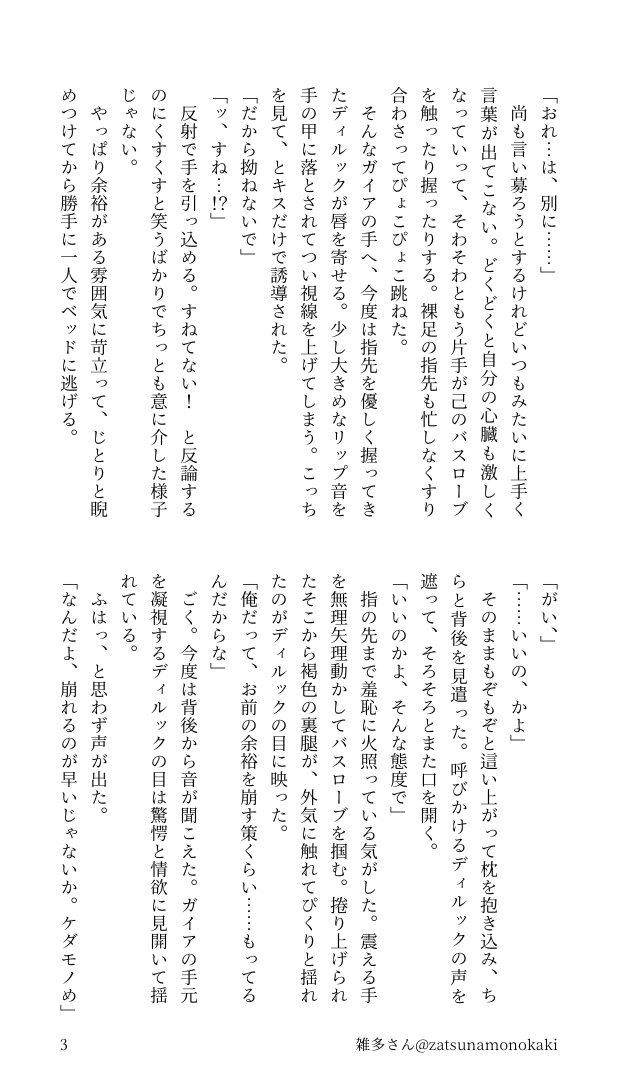 「おれ…は、別に……」
　尚も言い募ろうとするけれどいつもみたいに上手く
言葉が出てこない。どくどくと自分の心臓も激しく
なっていって、そわそわともう片手が己のバスローブ
を触ったり握ったりする。裸足の指先も忙しなくすり
合わさってぴょこぴょこ跳ねた。
　そんなガイアの手へ、今度は指先を優しく握ってき
たディルックが唇を寄せる。少し大きめなリップ音を
手の甲に落とされてつい視線を上げてしまう。こっち
を見て、とキスだけで誘導された。
「だから拗ねないで」
「ッ、すね…!?」
　反射で手を引っ込める。すねてない！　と反論する
のにくすくすと笑うばかりでちっとも意に介した様子
じゃない。
　やっぱり余裕がある雰囲気に苛立って、じとりと睨
めつけてから勝手に一人でベッドに逃げる。
「がい、」
「……いいの、かよ」
　そのままもぞもぞと這い上がって枕を抱き込み、ち
らと背後を見遣った。呼びかけるディルックの声を
遮って、そろそろとまた口を開く。
「いいのかよ、そんな態度で」
　指の先まで羞恥に火照っている気がした。震える手
を無理矢理動かしてバスローブを掴む。捲り上げられ
たそこから褐色の裏腿が、外気に触れてぴくりと揺れ
たのがディルックの目に映った。
「俺だって、お前の余裕を崩す策くらい……もってる
んだからな」
　ごく。今度は背後から音が聞こえた。ガイアの手元
を凝視するディルックの目は驚愕と情欲に見開いて揺
れている。
　ふはっ、と思わず声が出た。
「なんだよ、崩れるのが早いじゃないか。ケダモノめ」
3
雑多さん@zatsunamonokaki